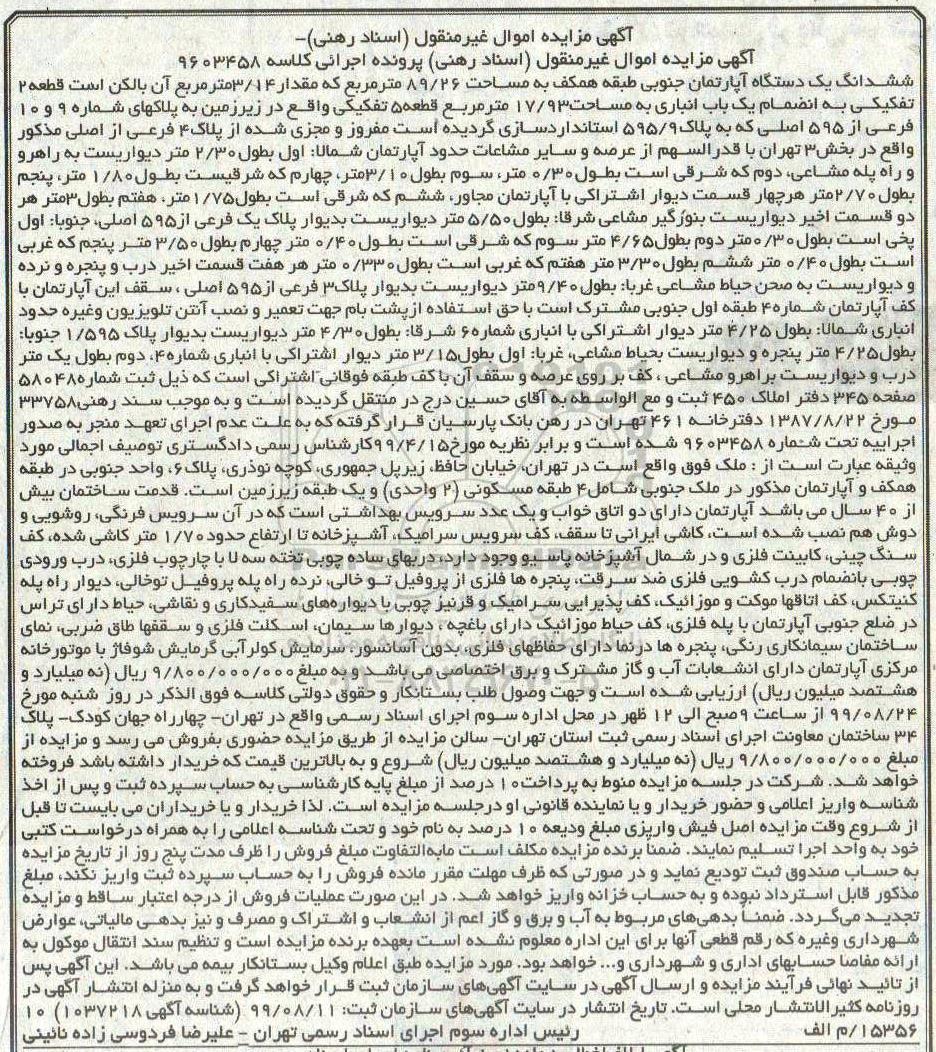 آگهی مزایده اموال غیرمنقول (اسناد رهنی)-
آگهی مزایده اموال غیرمنقول (اسناد رهنی) پرونده اجرائی کلاسه ۹۶۰۳۴۵۸
ششدانگ یک دستگاه آپارتمان جنوبی طبقه همکف به مساحت ۸۹/۲۶ مترمربع که مقدار ۳/۱۴مترمربع آن بالکن است قطعه۲
تفکیکی به انضمام یک باب انباری به مساحت۱۷/۹۳ مترمربع قطعه۵ تفکیکی واقع در زیرزمین به پلاکهای شماره ۹ و ۱۰
فرعی از ۵۹۵ اصلی که به پلاک۵۹۵/۹ استانداردسازی گردیده است مفروز و مجزی شده از پلاک۴ فرعی از اصلی مذکور
واقع در بخش۳ تهران با قدرالسهم از عرصه و سایر مشاعات حدود آپارتمان شمالا: اول بطول۲/۳۰ متر دیواریست به راهرو
و راه پله مشاعی، دوم که شرقی است بطول۰/۳۰ متر، سوم بطول۳/۱۰متر، چهارم که شرقیست بطول۱/۸۰ متر، پنجم
بطول۲/۷۰متر هرچهار قسمت دیوار اشتراکی با آپارتمان مجاور، ششم که شرقی است بطول۱/۷۵متر، هفتم بطول۳متر هر
دو قسمت اخیر دیواریست بنورگیر مشاعی شرقا: بطول۵/۵۰ متر دیواریست بدیوار پلاک یک فرعی از۵۹۵ اصلی، جنوبا: اول
پخی است بطول۰/۳۰متر دوم بطول۴/۶۵ متر سوم که شرقی است بطول۰/۴۰ متر چهارم بطول۳/۵۰ متر پنجم که غربی
است بطول۰/۴۰ متر ششم بطول۳/۳۰ متر هفتم که غربی است بطول۰/۳۳۰ متر هر هفت قسمت اخیر درب و پنجره و نرده
و دیواریست به صحن حیاط مشاعی غربا: بطول۹/۴۰متر دیواریست بدیوار پلاک۳ فرعی از۵۹۵ اصلی ، سقف این آپارتمان با
کف آپارتمان شماره۴ طبقه اول جنوبی مشترک است با حق استفاده ازپشت بام جهت تعمیر و نصب آنتن تلویزیون وغیره حدود
انباری شمالا: بطول ۴/۲۵ متر دیوار اشتراکی با انباری شماره۶ شرقا: بطول۴/۳۰ متر دیواریست بدیوار پلاک ۱/۵۹۵ جنوبا:
بطول۴/۲۵ متر پنجره و دیواریست بحیاط مشاعی، غربا: اول بطول۳/۱۵ متر دیوار اشتراکی با انباری شماره۴، دوم بطول یک متر
درب و دیواریست براهرو مشاعی ، کف بر روی عرصه و سقف آن با کف طبقه فوقانی اشتراکی است که ذیل ثبت شماره۵۸۰۴۸
صفحه ۳۴۵ دفتر املاک ۴۵۰ ثبت و مع الواسطه به آقای حسین درج در منتقل گردیده است و به موجب سند رهنی۳۳۷۵۸
مورخ ۱۳۸۷/۸/۲۲ دفترخانه ۴۶۱ تهران در رهن بانک پارسیان قرار گرفته که به علت عدم اجرای تعهد منجر به صدور
اجراییه تحت شماره ۹۶۰۳۴۵۸ شده است و برابر نظریه مورخ۹۹/۴/۱۵کارشناس رسمی دادگستری توصیف اجمالی مورد
وثیقه عبارت است از : ملک فوق واقع است در تهران، خیابان حافظ، زیرپل جمهوری، کوچه نوذری، پلاک۶، واحد جنوبی در طبقه
همکف و آپارتمان مذکور در ملک جنوبی شامل۴ طبقه مسکونی (۲ واحدی) و یک طبقه زیرزمین است. قدمت ساختمان بیش
از ۴۰ سال می باشد آپارتمان دارای دو اتاق خواب و یک عدد سرویس بهداشتی است که در آن سرویس فرنگی، روشویی و
دوش هم نصب شده است، کاشی ایرانی تا سقف، کف سرویس سرامیک، آشپزخانه تا ارتفاع حدود۱/۷۰ متر کاشی شده، کف
سنگ چینی، کابینت فلزی و در شمال آشپزخانه پاسیو وجود دارد، دربهای ساده چوبی تخته سه لا با چارچوب فلزی، درب ورودی
چوبی بانضمام درب کشویی فلزی ضد سرقت، پنجره ها فلزی از پروفیل تو خالی، نرده راه پله پروفیل توخالی، دیوار راه پله
کنیتکس، کف اتاقها موکت و موزائیک، کف پذیرایی سرامیک و قرنیز چوبی با دیواره‌های سفیدکاری و نقاشی، حیاط دارای تراس
در ضلع جنوبی آپارتمان با پله فلزی، کف حیاط موزائیک دارای باغچه، دیوارها سیمان، اسکلت فلزی و سقفها طاق ضربی، نمای
ساختمان سیمانکاری رنگی، پنجره ها درنما دارای حفاظهای فلزی، بدون آسانسور، سرمایش کولرآبی گرمایش شوفاژ با موتورخانه
مرکزی آپارتمان دارای انشعابات آب و گاز مشترک و برق اختصاصی می باشد و به مبلغ ۹/۸۰۰/۰۰۰/۰۰۰ ریال (نه میلیارد و
هشتصد میلیون ریال) ارزیابی شده است و جهت وصول طلب بستانکار و حقوق دولتی کلاسه فوق الذکر در روز شنبه مورخ
۹۹/۰۸/۲۴ از ساعت ۹صبح الی ۱۲ ظهر در محل اداره سوم اجرای اسناد رسمی واقع در تهران- چهارراه جهان کودک- پلاک
۳۴ ساختمان معاونت اجرای اسناد رسمی ثبت استان تهران- سالن مزایده از طریق مزایده حضوری بفروش می رسد و مزایده از
مبلغ ۹/۸۰۰/۰۰۰/۰۰۰ ریال (نه میلیارد و هشتصد میلیون ریال) شروع و به بالاترین قیمت که خریدار داشته باشد فروخته
خواهد شد. شرکت در جلسه مزایده منوط به پرداخت۱۰ درصد از مبلغ پایه کارشناسی به حساب سپرده ثبت و پس از اخذ
شناسه واریز اعلامی و حضور خریدار و یا نماینده قانونی او درجلسه مزایده است. لذا خریدار و یا خریداران می بایست تا قبل
از شروع وقت مزایده اصل فیش واریزی مبلغ ودیعه ۱۰ درصد به نام خود و تحت شناسه اعلامی را به همراه درخواست کتبی
خود به واحد اجرا تسلیم نمایند. ضمنا برنده مزایده مکلف است مابه‌التفاوت مبلغ فروش را ظرف مدت پنج روز از تاریخ مزایده
به حساب صندوق ثبت تودیع نماید و در صورتی که ظرف مهلت مقرر مانده فروش را به حساب سپرده ثبت واریز نکند، مبلغ
مذکور قابل استرداد نبوده و به حساب خزانه واریز خواهد شد. در این صورت عملیات فروش از درجه اعتبار ساقط و مزایده
تجدید می‌گردد. ضمنا بدهی‌های مربوط به آب و برق و گاز اعم از انشعاب و اشتراک و مصرف و نیز بدهی مالیاتی، عوارض
شهرداری وغیره که رقم قطعی آنها برای این اداره معلوم نشده است بعهده برنده مزایده است و تنظیم سند انتقال موکول به
ارائه مفاصا حسابهای اداری و شهرداری و... خواهد بود. مورد مزایده طبق اعلام وکیل بستانکار بیمه می باشد. این آگهی پس
از تائید نهائی فرآیند مزایده و ارسال آگهی در سایت آگهی‌های سازمان ثبت قرار خواهد گرفت و به منزله انتشار آگهی در
روزنامه کثیرالانتشار محلی است. تاریخ انتشار در سایت آگهی‌های سازمان ثبت: ۹۹/۰۸/۱۱ (شناسه آگهی ۱۰۳۷۲۱۸) ۱۰
۱۵۳۵۶/م الف رئیس اداره سوم اجرای اسناد رسمی تهران - علیرضا فردوسی زاده نائینی